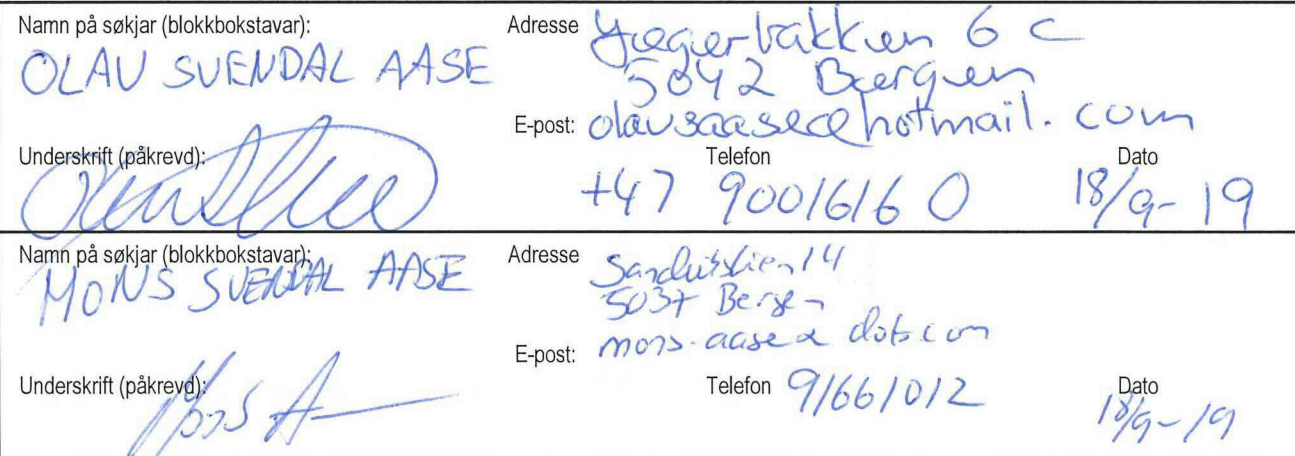 Namn på søkjar (blokkbokstavar):
OLAV SVENDAL AASE
Adresse
6 C
5042 Bergen
E-post: olavsaase@hotmail.com
Underskrift (påkrevd):
Telefon
+47 90016160
Dato
18/9-19
Namn på søkjar (blokkbokstavar):
MONS SVENDAL AASE
Adresse
14
5037 Bergen
E-post:
Underskrift (påkrevd):
Telefon 91661012
Dato
18/9-19